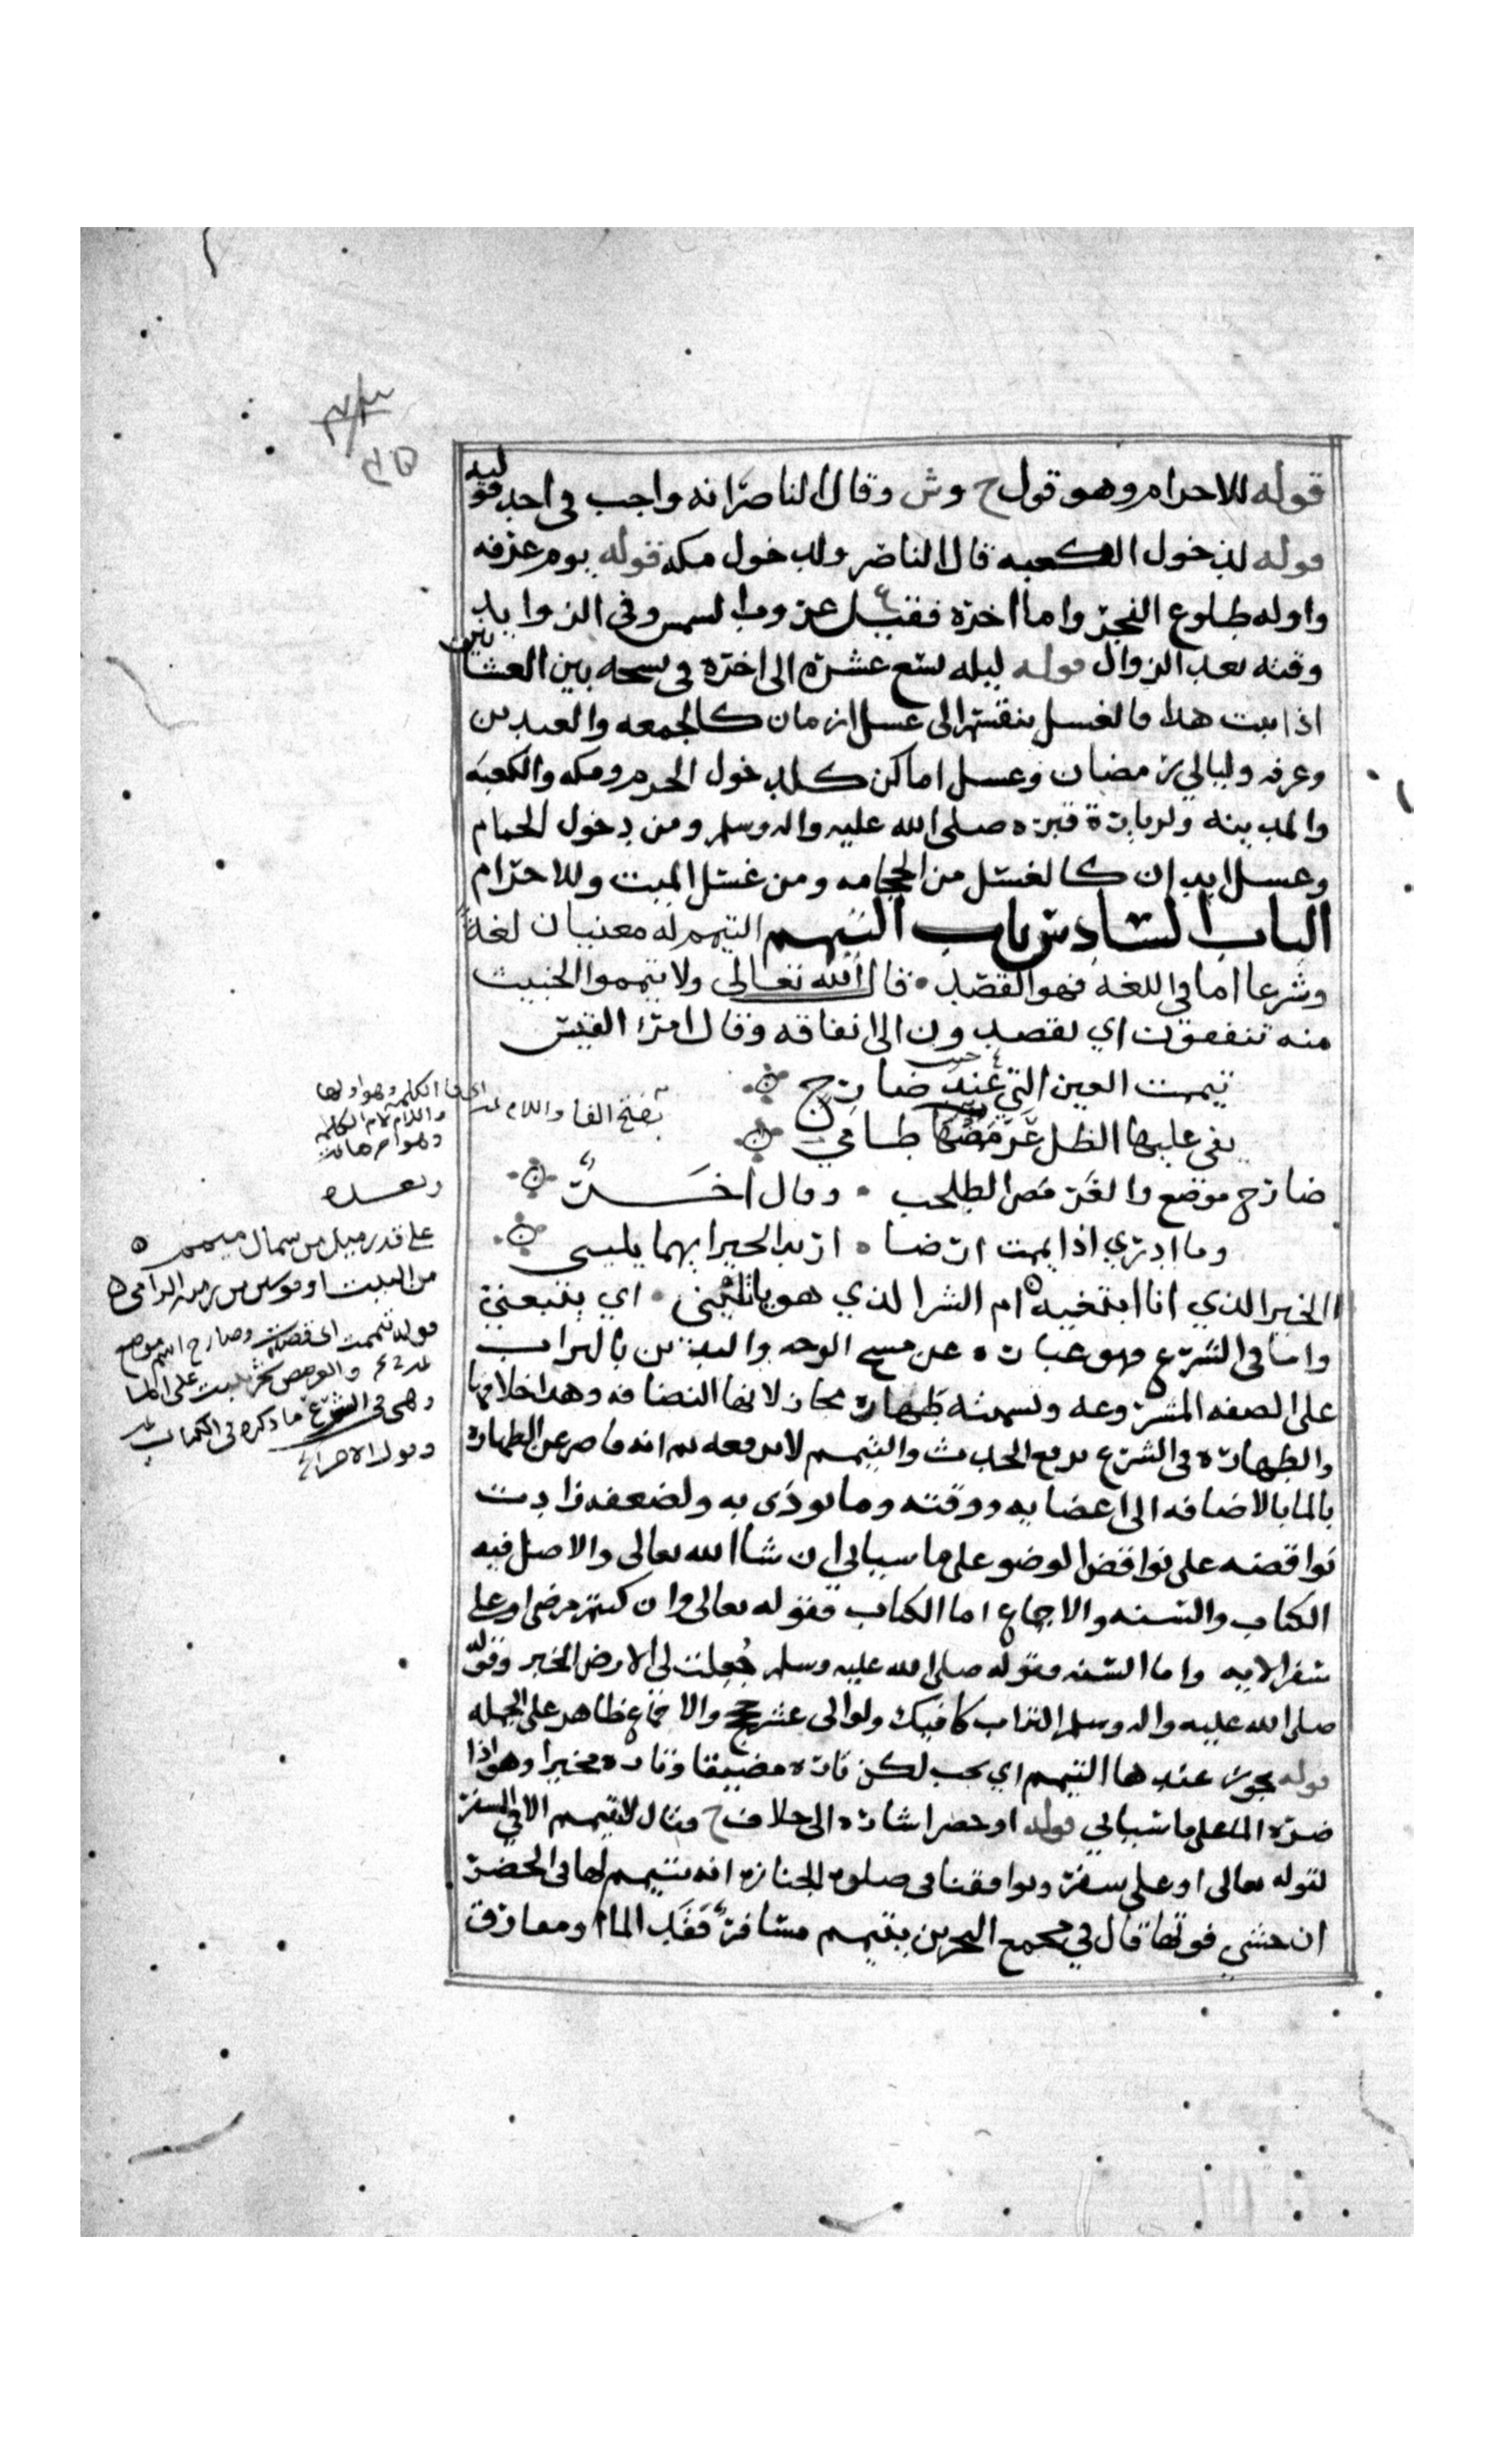 قوله للاحرام وهو قول ح وش وقال الناصر انه واجب في احد قوليه
قوله لدخول الكعبه قال الناصر ولدخول مكه قوله يوم عرفه
واوله طلوع الفجر واما اخره فقيل غروب الشمس وفي الزوايد
وقته بعد الزوال قوله ليله تسع عشره الى اخره في نسحه بين العشائين
اذا ثبت هذا فالغسل ينقسم الى غسل ازمان كالجمعه والعيدين
وعرفه وليالي رمضان وغسل اماكن كلدخول الحرم ومكه والكعبه
والمدينه ولزيارة قبره صلى الله عليه واله وسلم ومن دخول الحمام
وغسل ابدان كالغسل من الحجامه ومن غسل الميت وللاحرام
الباب السادس باب التيمم التيمم له معنيان لغة
وشرعا اما في اللغة فهو القصد قال الله تعالى ولا تيمموا الخبيث
منه تنفقون اي تقصدون الى انفاقه وقال امرا القيس
تيممت العين التي عند ضارج
يفى عليها الظل عرمضها طامي
بفتح الفا واللام
ضارج موضع والعرمض الطلحب وقال اخر
وما ادري اذا يممت ارضا اريد الخير ايهما يليني
االخير الذي انا ابتغيه ام الشر الذي هو ياتليني اي يتبعني
واما في الشرع فهو عباره عن مسح الوجه واليدين بالتراب
على الصفه المشروعه وتسميته طهارة مجاز لانها النضافه وهذا خلافها
والطهاره في الشرع ترفع الحدث والتيمم لا يرفعه ثم انه قاصر عن الطهاره
بالما بالاضافه الى اعضايه ووقته وما يوذى به ولضعفه زادت
نواقضه على نواقض الوضو على ما سياتي ان شا الله تعالى والاصل فيه
الكتاب والسنه والاجماع اما الكتاب فقوله تعالى وان كنتم مرضى او على
سفر الايه واما السنه فقوله صلى الله عليه وسلم جُعلت لي الارض الخبر وقوله
صلى الله عليه واله وسلم التراب كافيك ولو الى عشر حجج والاجماع ظاهر على الجمله
قوله يجوز عندها التيمم اي يجب لكن تاره مضيقا وتاره مخيرا وهو اذا
ضره الما على ما سياتي قوله او حضر اشاره الى خلاف ح فقال لا تيمم الا في السفر
لقوله تعالى او على سفر ويوافقنا في صلوه الجنازه انه يتيمم لها في الحضر
ان خشي فوتها قال في مجمع البحرين يتيمم مسافر فَقَد الما او مفارق
اى فا الكلمه وهو اولها
واللام لام الكلمه
وهو اخرها
على قدر ميل من شمال ميمم
من البيت او قوسين من رميه الرامي
قوله تيممت اى قصدت وضارج اسم موضع
والعرمض نبت على الما
وهى فى الشرع ما ذكره فى الكتاب